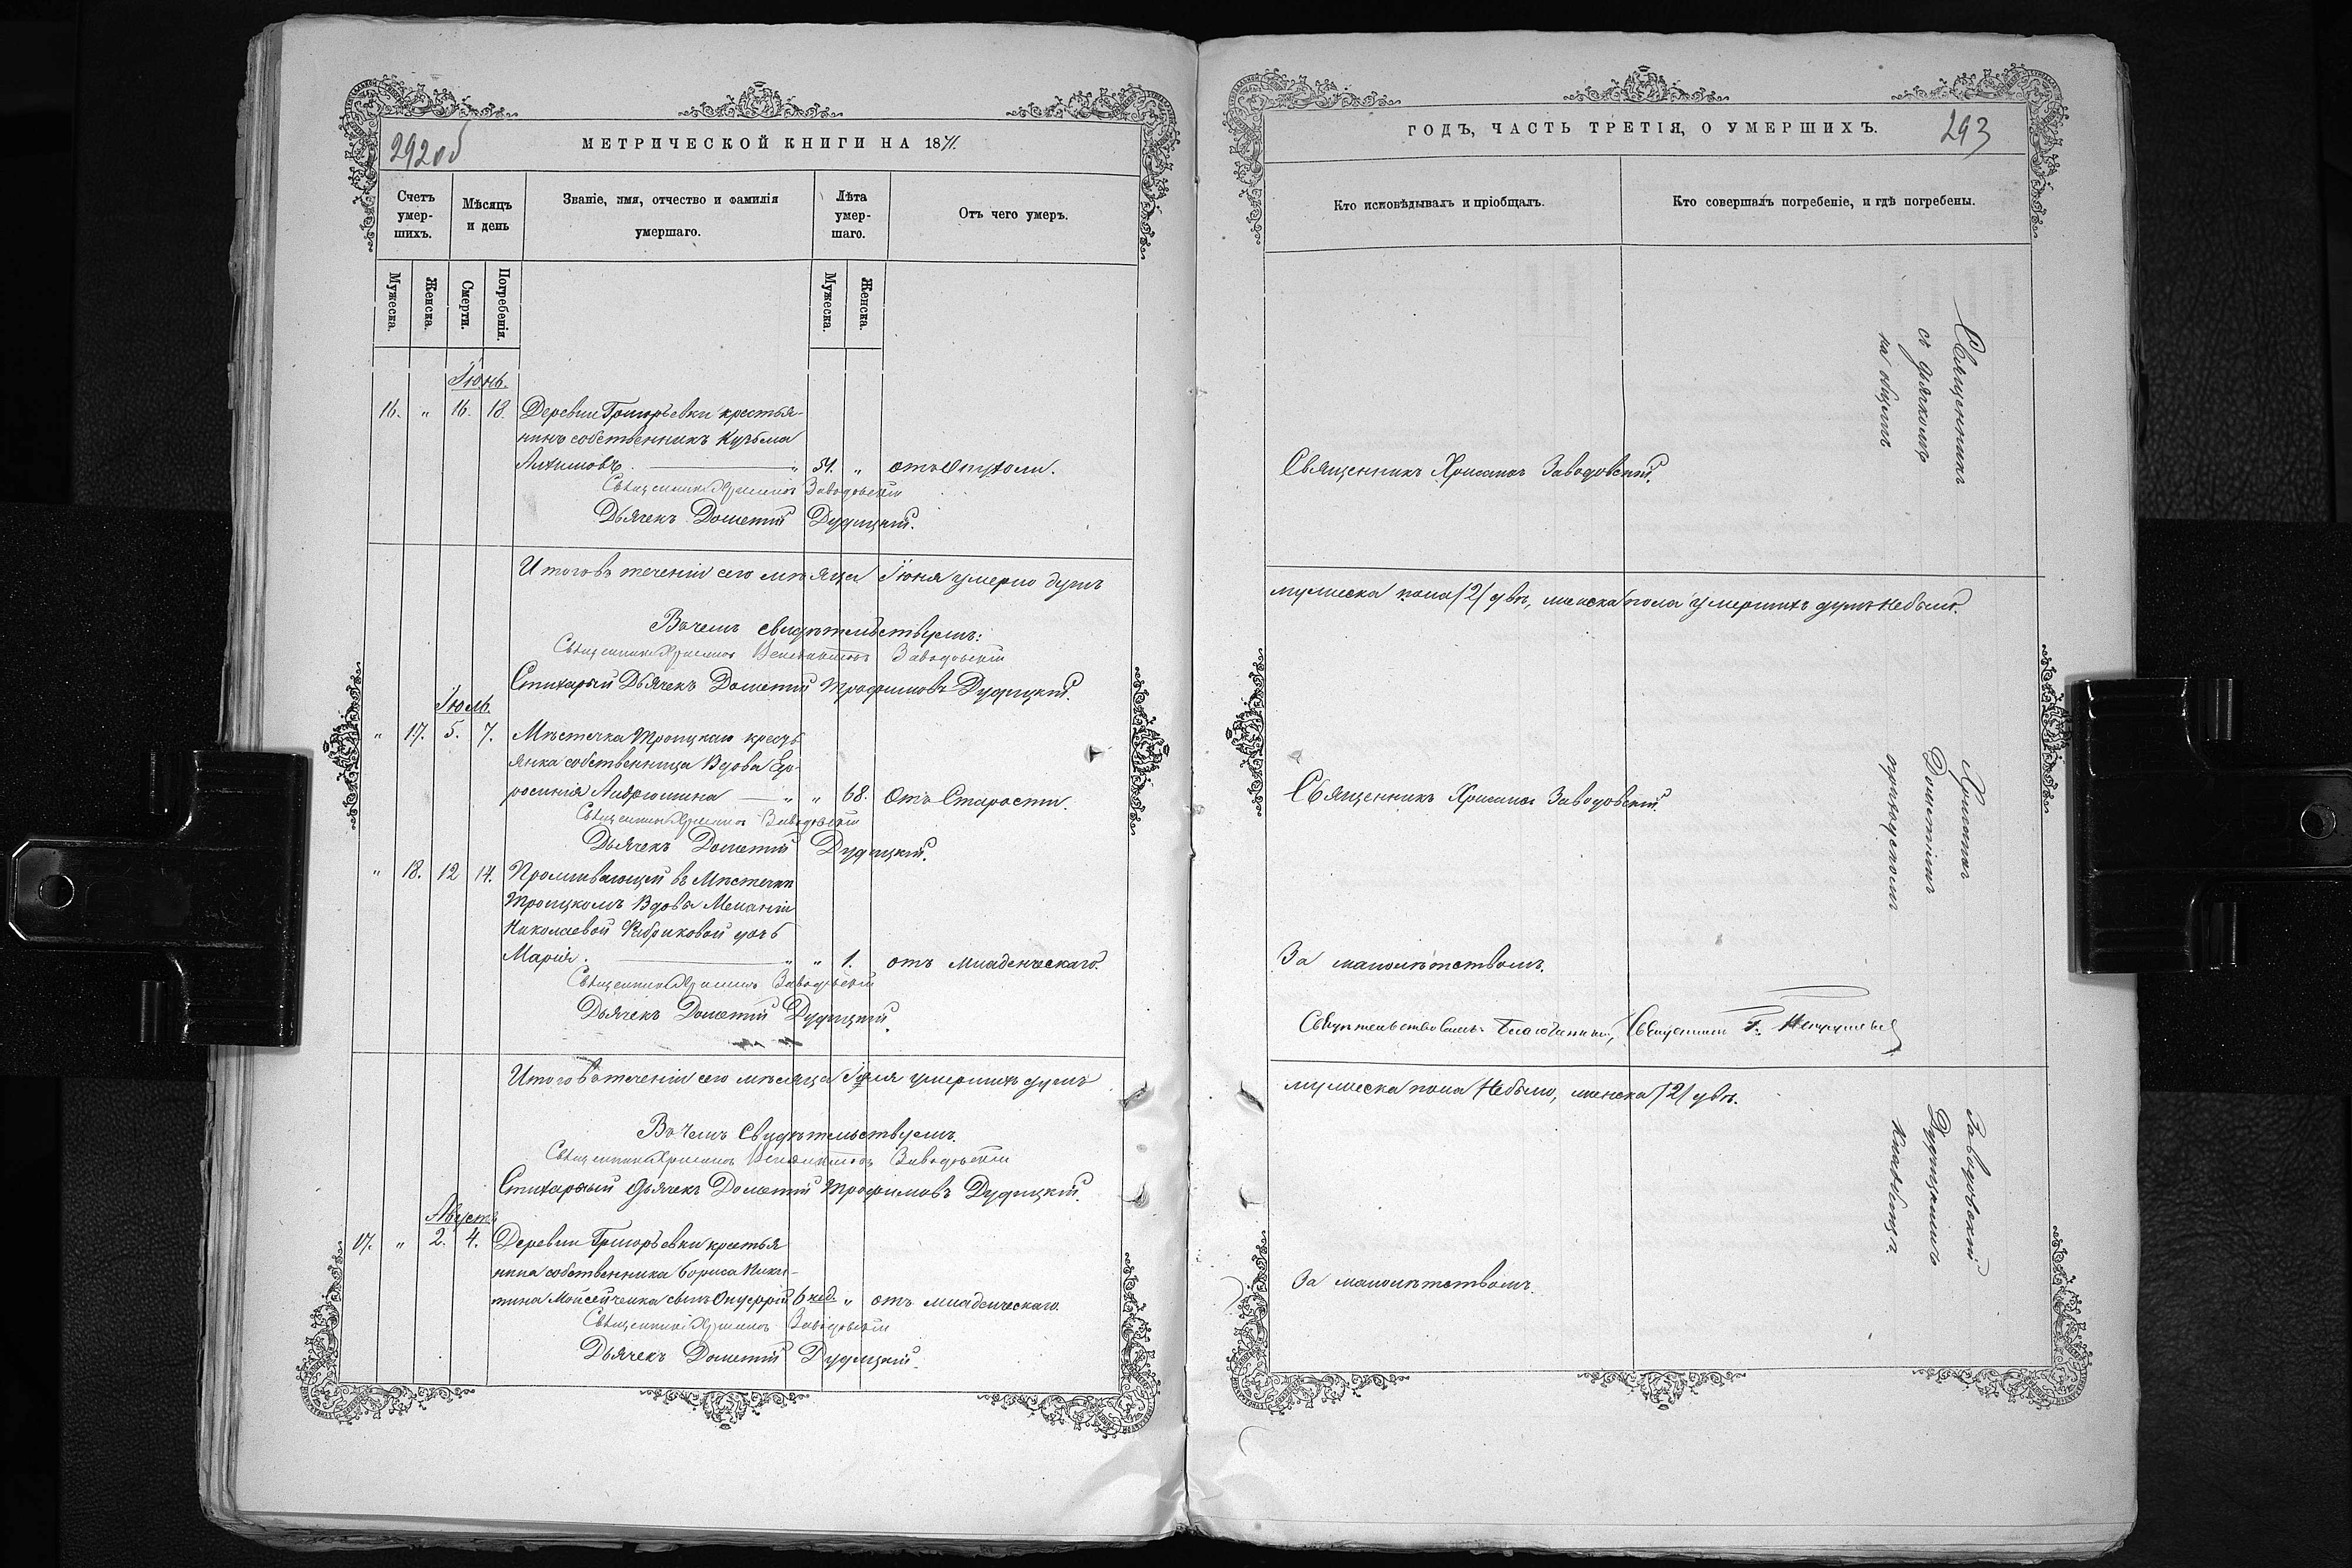 292 об
МЕТРИЧЕСКОЙ КНИГИ НА 1871.
Счетъ умер-шихъ.
Мѣсяцъ и день
Званіе, имя, отчество и фамилія умершаго.
Лѣта умер-шаго.
Отъ чего умеръ.
Мужеска.
Женска.
Смерти.
Погребенія.
Мужеска.
Женска.
Іюнь.
16. " 16. 18. Деревни Григорьевки крестья-
нинъ собственникъ Кузьма
" 54. " отъ Опухоли.
Священникъ Заводовскій
Дьячекъ Дометій Дудицкій.
Итого въ теченіи сего мѣсяца Іюня умерло душъ
Въ чемъ свидѣтельствуемъ:
Священникъ Заводовскій
Стихарный Дьячекъ Дометій Трофимовъ Дудицкій.
Іюль.
" 17. 5. 7. Мѣстечка Троицкаго кресть
янка собственница Вдова Еф-
росинія " " 68. Отъ Старости.
Священникъ Заводовскій
Дьячекъ Дометій Дудицкій.
" 18. 12 14. Проживающей въ Мѣстечкѣ
Троицкомъ Вдовы Меланіи
Николаевой Фабриковой дочь
Марія. " " 1. отъ младенческаго.
Священникъ Заводовскій
Дьячекъ Дометій Дудицкій.
Итого въ теченіи сего мѣсяца Іюля умершихъ душъ
Въ чемъ Свидѣтельствуемъ.
Священникъ Заводовскій
Стихарный дьячекъ Дометій Трофимовъ Дудицкій.
Августъ
17. " 2. 4. Деревни Григорьевки крестья
нина собственника Бориса Ники-
тина Мойсейченка сынъ Онуфрій 6 нед. " отъ младенческаго
Священникъ Заводовскій
Дьячекъ Дометій Дудицкій.
ГОДЪ, ЧАСТЬ ТРЕТІЯ, О УМЕРШИХЪ.
293
Кто исповѣдывалъ и пріобщалъ.
Кто совершалъ погребеніе, и гдѣ погребены.
Священникъ Заводовскій.
мужеска пола /2/ два, женска пола умершихъ душъ Небыло.
Священникъ Заводовскій.
За малолѣтствомъ.
Свидѣтельствовалъ: Благочинный, Священникъ Г.
мужеска пола Небыло, женска /2/ двѣ.
За малолѣтствомъ.
Священникъ Заводовскій
съ дьячкомъ Дометіемъ Дудицкимъ
на общемъ приходскомъ кладбищѣ.